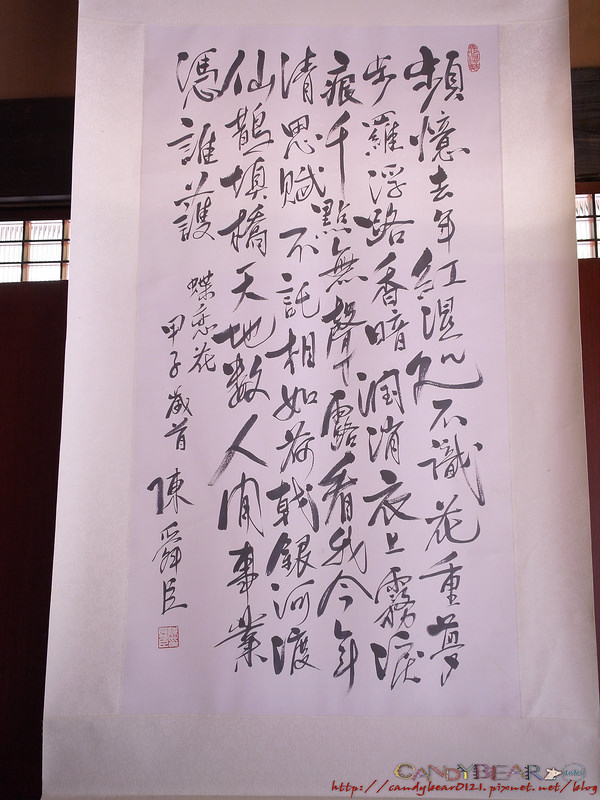 頻憶去年紅濕処不識花重夢
步羅浮路香暗潤消衣上霧淚
痕千點無聲露看我今年
清思賦不託相如荷戟銀河渡
仙鵲填橋天地数人間事業
憑誰護
蝶恋花
甲子歳首 陳舜臣
CANDYBEAR
http://candybear0121.pixnet.net/blog